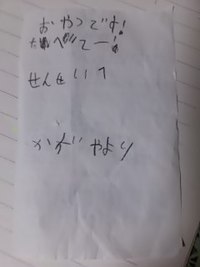 おやつです!
たべてー!
せんせいへ
かずやより